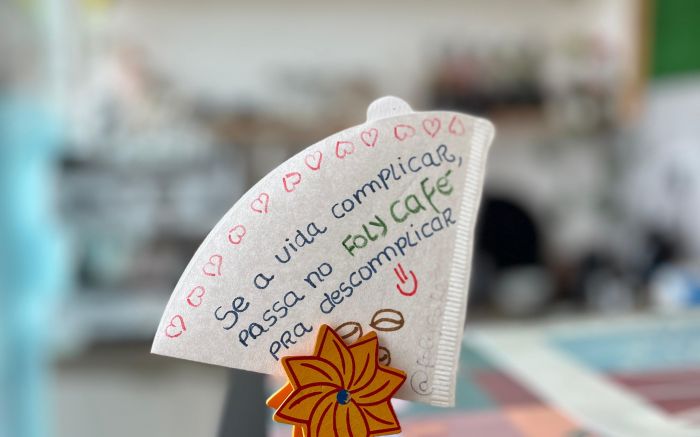 Se a vida complicar,
passa no Foly Café
pra descomplicar